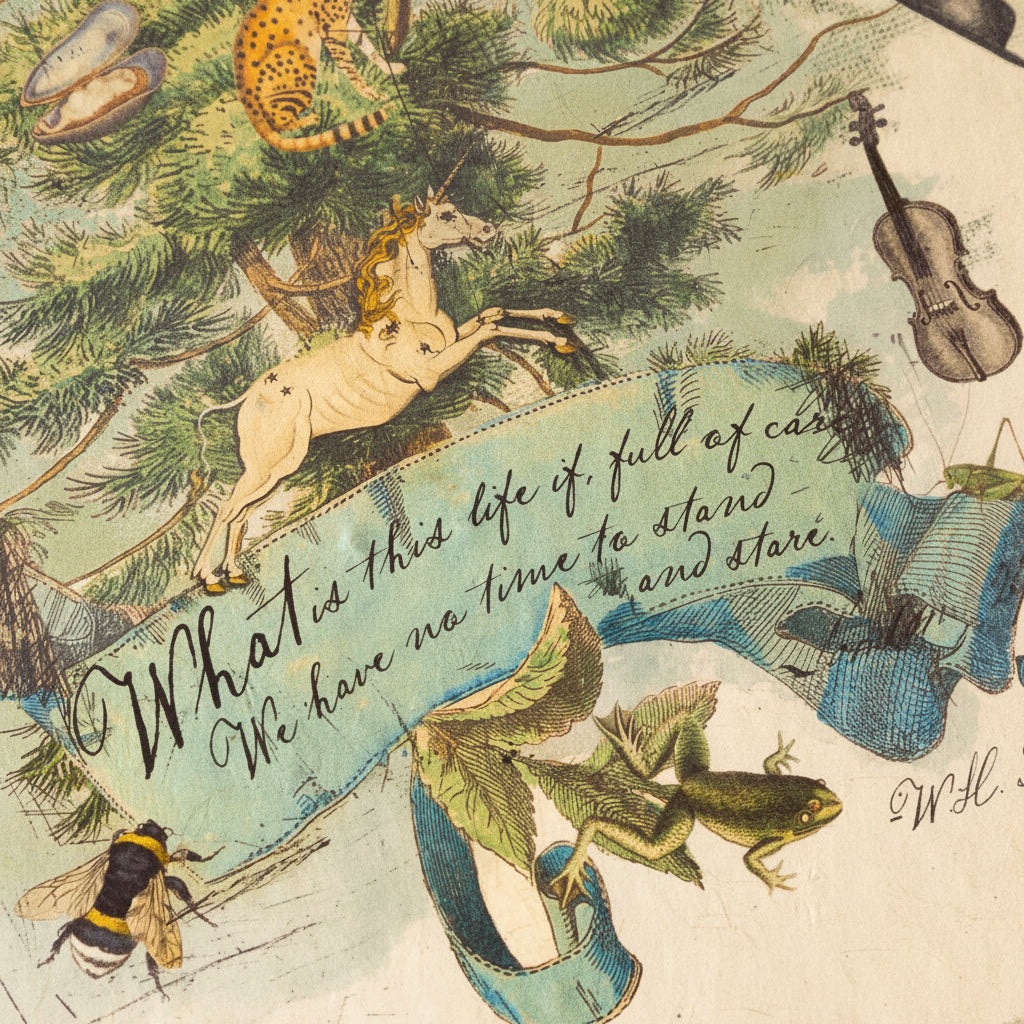 What is this life if, full of care,
We have no time to stand
and stare.
W.H.